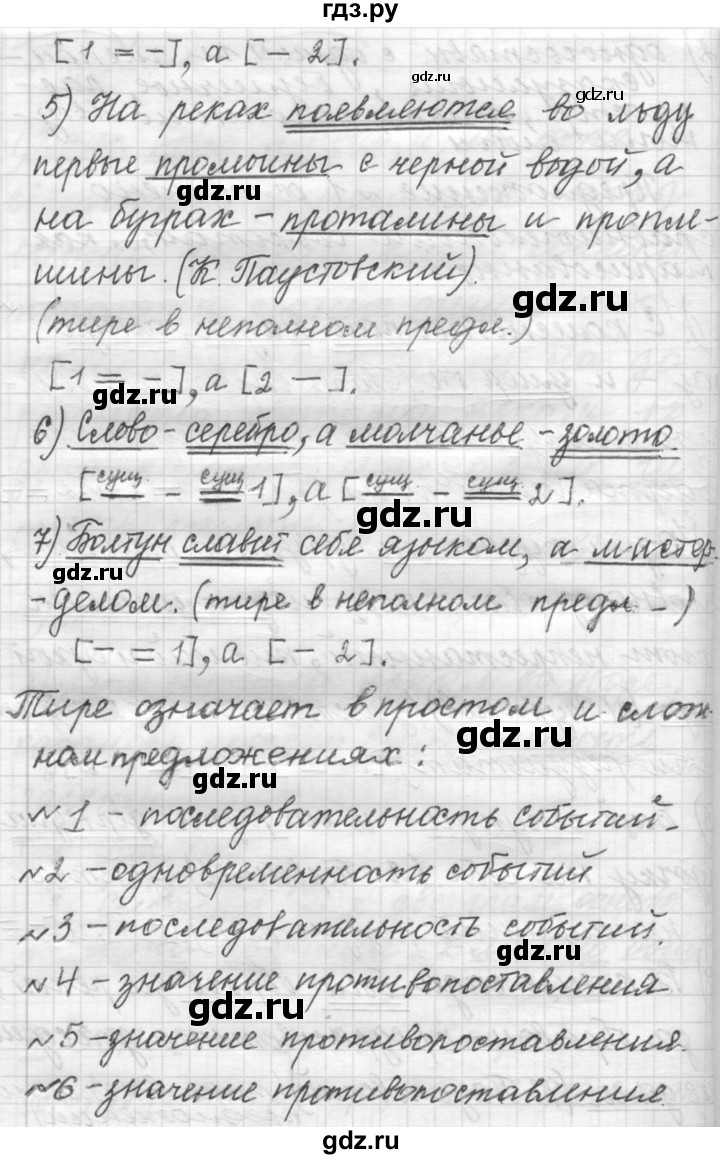 гдз.ру
[1 = –], а [– 2].
gdz.ru
5) На реках появляются во льду
gdz.ru
первые промоины с черной водой, а
gdz.ru
на буграх – проталины и пропле-
шины. (К. Паустовский).
gdz.ru
(тире в неполном предл.)
[1 = –], а [2 –].
gdz.ru
6) Слово – серебро, а молчанье – золото.
[сущ – сущ 1], а [сущ – сущ 2].
gdz.ru
7) Болтун славит себя языком, а мастер
gdz.ru
– делом. (тире в неполном предл. –)
gdz.ru
[– = 1], а [– 2].
Тире означает в простом и слож-
gdz.ru
ном предложениях:
gdz.ru
№1 – последовательность событий.
№2 – одновременность событий
gdz.ru
№3 – последовательность событий.
№4 – значение противопоставления
gdz.ru
№5 – значение противопоставления.
gdz.ru
№6 – значение противопоставления.
gdz.ru